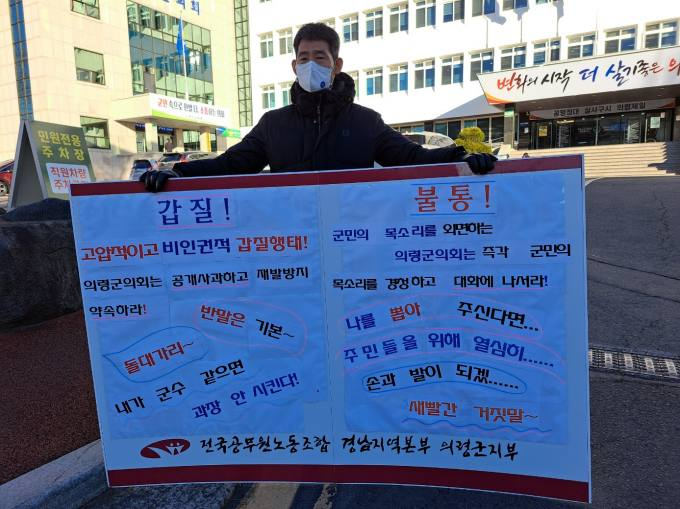 군민 속으로
변화의 시작 더 살기좋은 의
공정전대 실사구시 의령제일
민원전용
주차장
직원차량
갑질!
고압적이고 비인권적 갑질행태!
의령군의회는 공개사과하고 재발방지
약속하라!
반말은 기본~
돌대가리~
내가 군수 같으면
과장 안 시킨다!
불통!
군민의 목소리를 외면하는
의령군의회는 즉각 군민의
목소리를 경청하고 대화에 나서라!
나를 뽑아 주신다면...
주민들을 위해 열심히......
손과 발이 되겠......
새빨간 거짓말~
전국공무원노동조합 경남지역본부 의령군지부